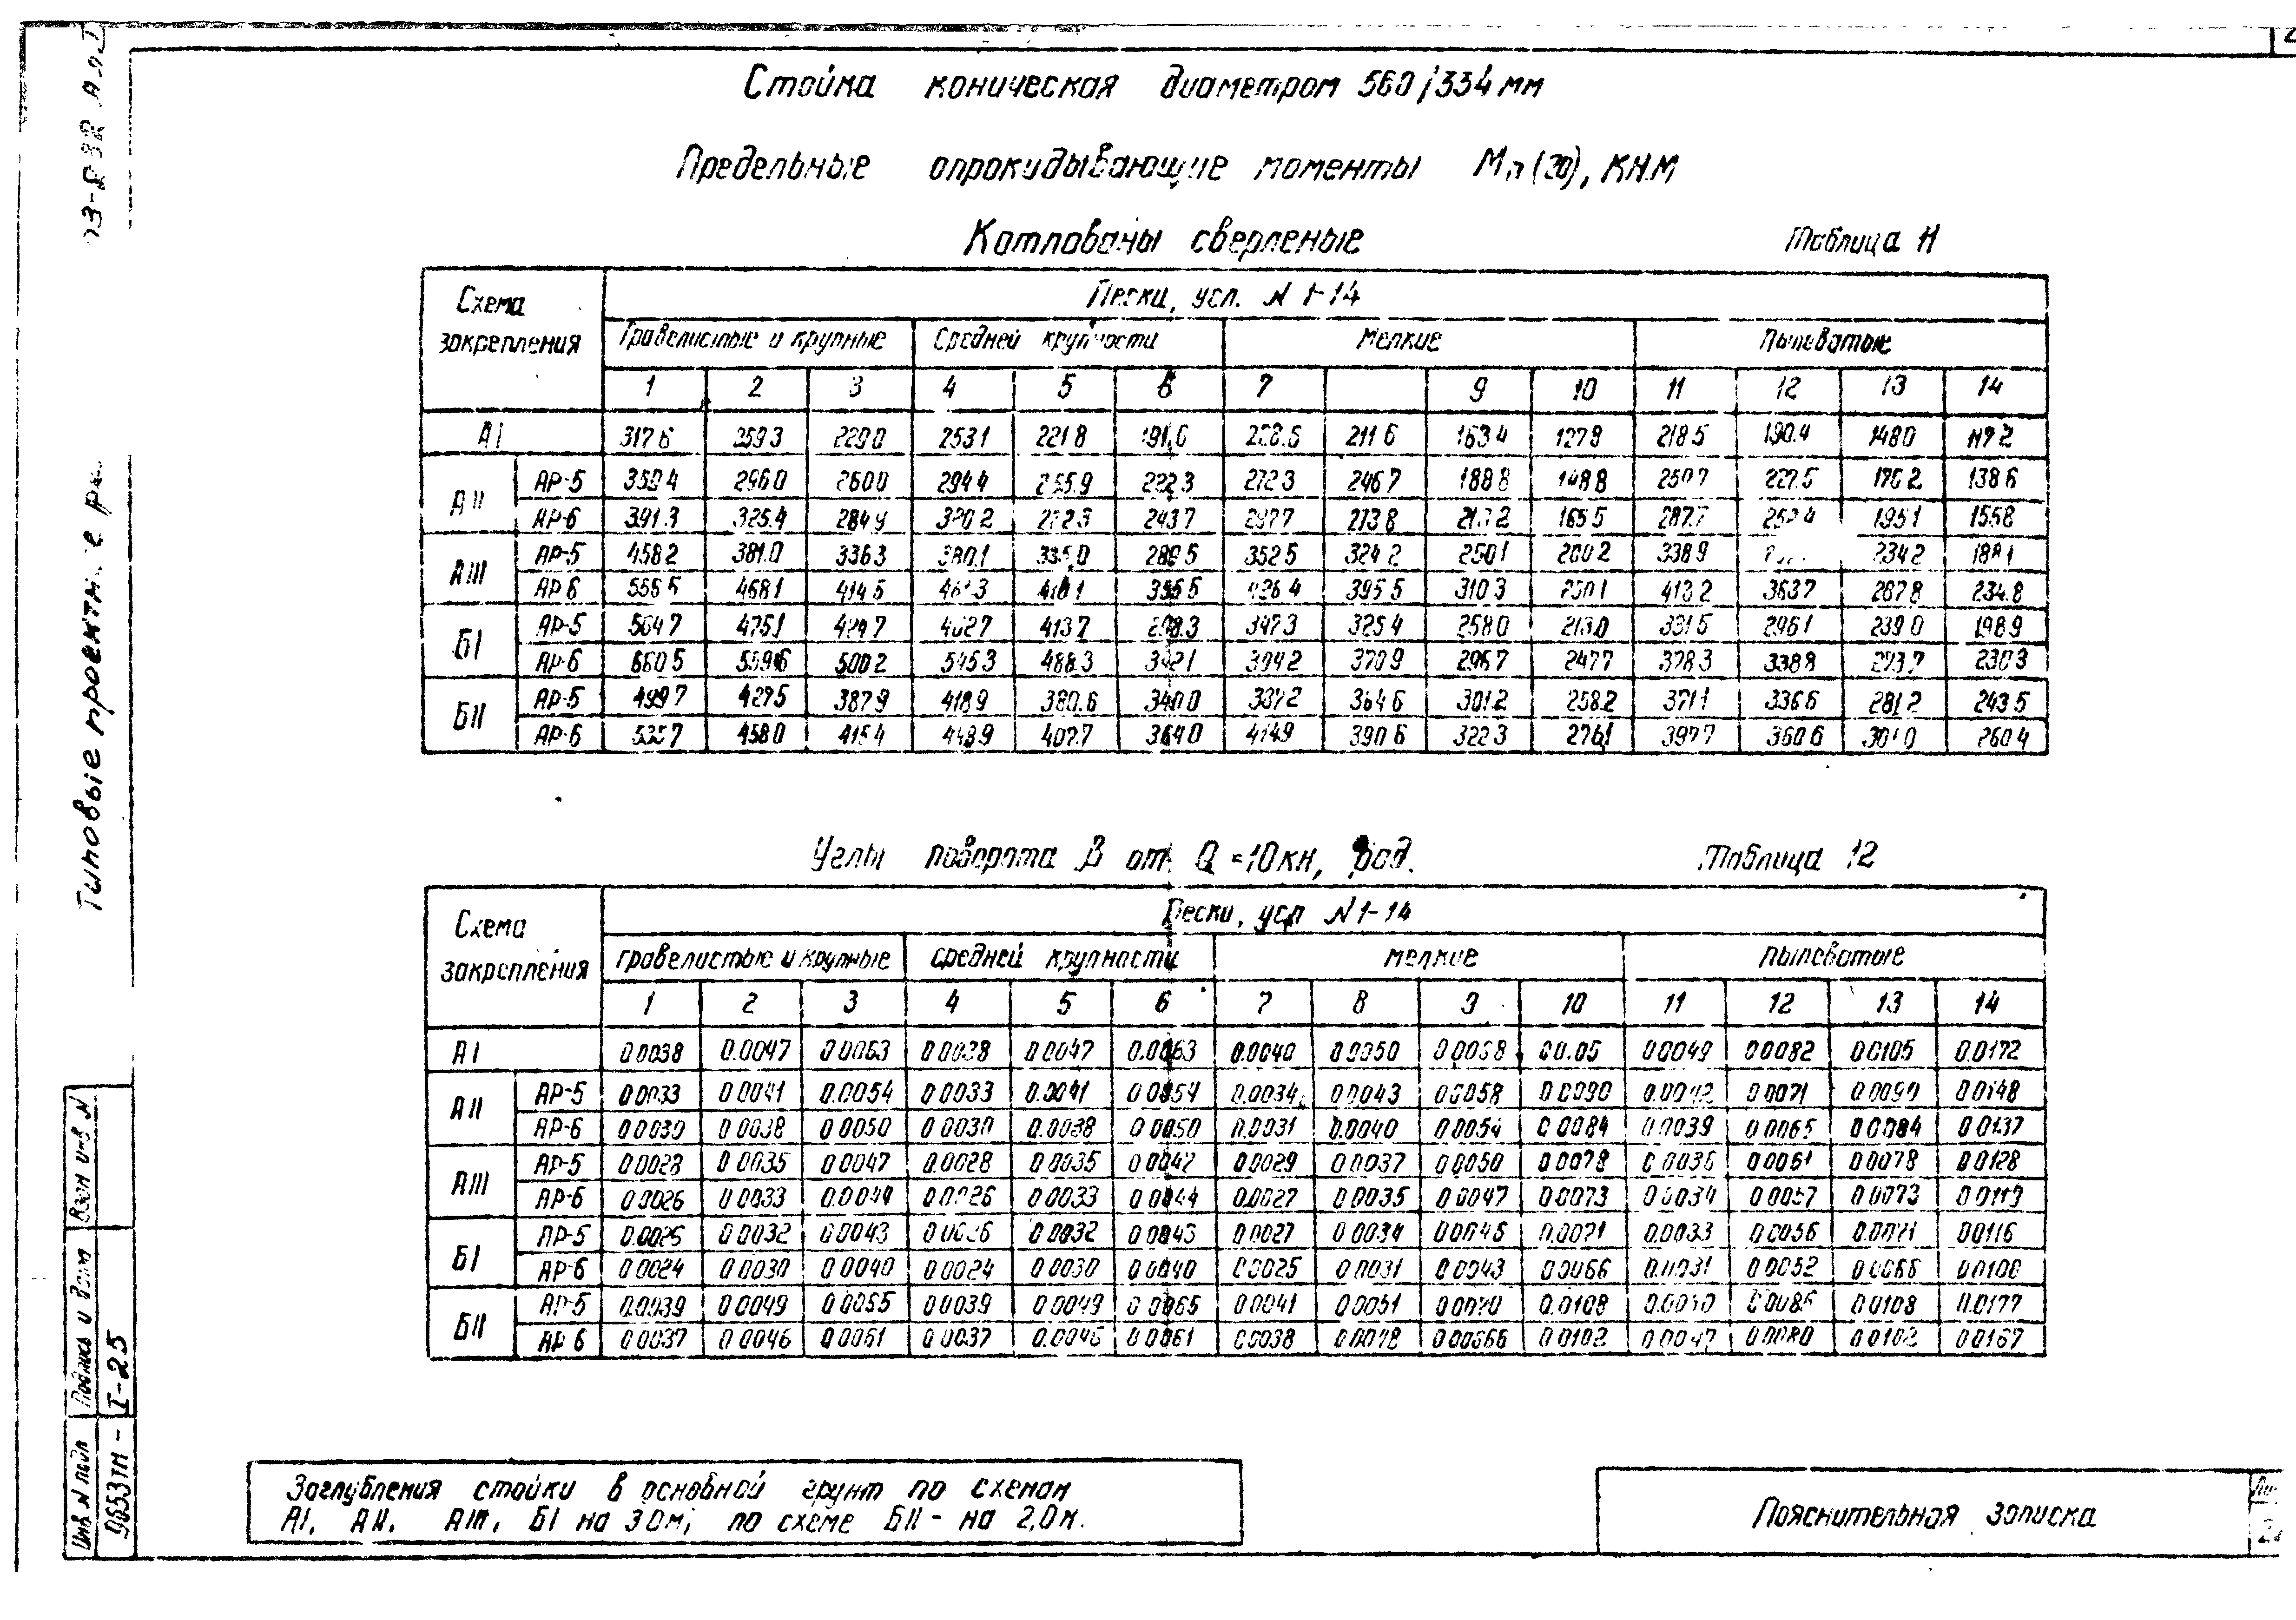 Стойка коническая диаметром 560/334 мм
Предельные опрокидывающие моменты Мп(20), КН.М
Котлованы сверленые Таблица 11
Схема закрепления
Пески, усл. N 1-14
Гравелистые и крупные Средней крупности Мелкие Пылеватые
1 2 3 4 5 6 7 9 10 11 12 13 14
АI 317.6 259.3 229.0 253.1 221.8 191.6 228.6 211.6 163.4 127.9 218.5 190.4 148.0 119.2
АII АР-5 359.4 296.0 260.0 294.4 255.9 222.3 272.3 246.7 188.8 148.8 250.7 227.5 176.2 138.6
АР-6 391.3 325.4 284.9 320.2 243.7 273.8 213.2 165.5 287.7 252.4 195.1 155.8
АIII АР-5 458.2 381.0 336.3 380.1 335.0 289.5 352.5 324.2 250.1 200.2 338.9 234.2 188.1
АР-6 468.1 414.5 418.1 426.4 395.5 310.3 250.1 413.2 363.7 287.8 234.8
БI АР-5 564.7 475.1 424.7 462.7 413.7 298.3 347.3 325.4 258.0 213.0 331.5 296.1 239.0 198.9
АР-6 660.5 559.6 500.2 545.3 488.3 342.1 394.2 370.9 296.7 247.7 378.3 338.8 273.7 230.3
БII АР-5 499.7 427.5 387.9 418.9 380.6 340.0 387.2 364.6 301.2 258.2 371.1 336.6 281.2 243.5
АР-6 535.7 458.0 415.4 448.9 407.7 364.0 414.9 390.6 322.3 276.1 397.7 360.6 301.0 260.4
Углы поворота β от Q =10кН, рад. Таблица 12
Схема закрепления
Пески, усл N 1-14
гравелистые и крупные средней крупности мелкие пылеватые
1 2 3 4 5 6 7 8 9 10 11 12 13 14
АI 0.0038 0.0047 0.0063 0.0038 0.0047 0.0063 0.0040 0.0050 0.0068 00.05 0.0049 0.0082 0.0105 0.0172
АII АР-5 0.0033 0.0041 0.0054 0.0033 0.0041 0.0054 0.0034 0.0043 0.0058 0.0090 0.0042 0.0071 0.0090 0.0148
АР-6 0.0030 0.0038 0.0050 0.0030 0.0038 0.0050 0.0031 0.0040 0.0054 0.0084 0.0039 0.0065 0.0084 0.0137
АIII АР-5 0.0028 0.0035 0.0047 0.0028 0.0035 0.0047 0.0029 0.0037 0.0050 0.0078 0.0036 0.0061 0.0078 0.0128
АР-6 0.0026 0.0033 0.0044 0.0026 0.0033 0.0044 0.0027 0.0035 0.0047 0.0073 0.0034 0.0057 0.0073 0.0119
БI АР-5 0.0026 0.0032 0.0043 0.0026 0.0032 0.0043 0.0027 0.0034 0.0046 0.0071 0.0033 0.0056 0.0071 0.0116
АР-6 0.0024 0.0030 0.0040 0.0024 0.0030 0.0040 0.0025 0.0031 0.0043 0.0066 0.0031 0.0052 0.0066 0.0108
БII АР-5 0.0039 0.0049 0.0065 0.0039 0.0049 0.0065 0.0041 0.0051 0.0070 0.0108 0.0050 0.0086 0.0108 0.0177
АР-6 0.0037 0.0046 0.0061 0.0037 0.0046 0.0061 0.0038 0.0048 0.00666 0.0102 0.0047 0.0080 0.0102 0.0167
Заглубления стойки в основной грунт по схемам
АI, АII, АIII, БI на 3.0м; по схеме БII - на 2,0м.
Пояснительная записка
Типовые проектные
Инв. N подл Подпись и дата Взам инв N
9653тм - I-25